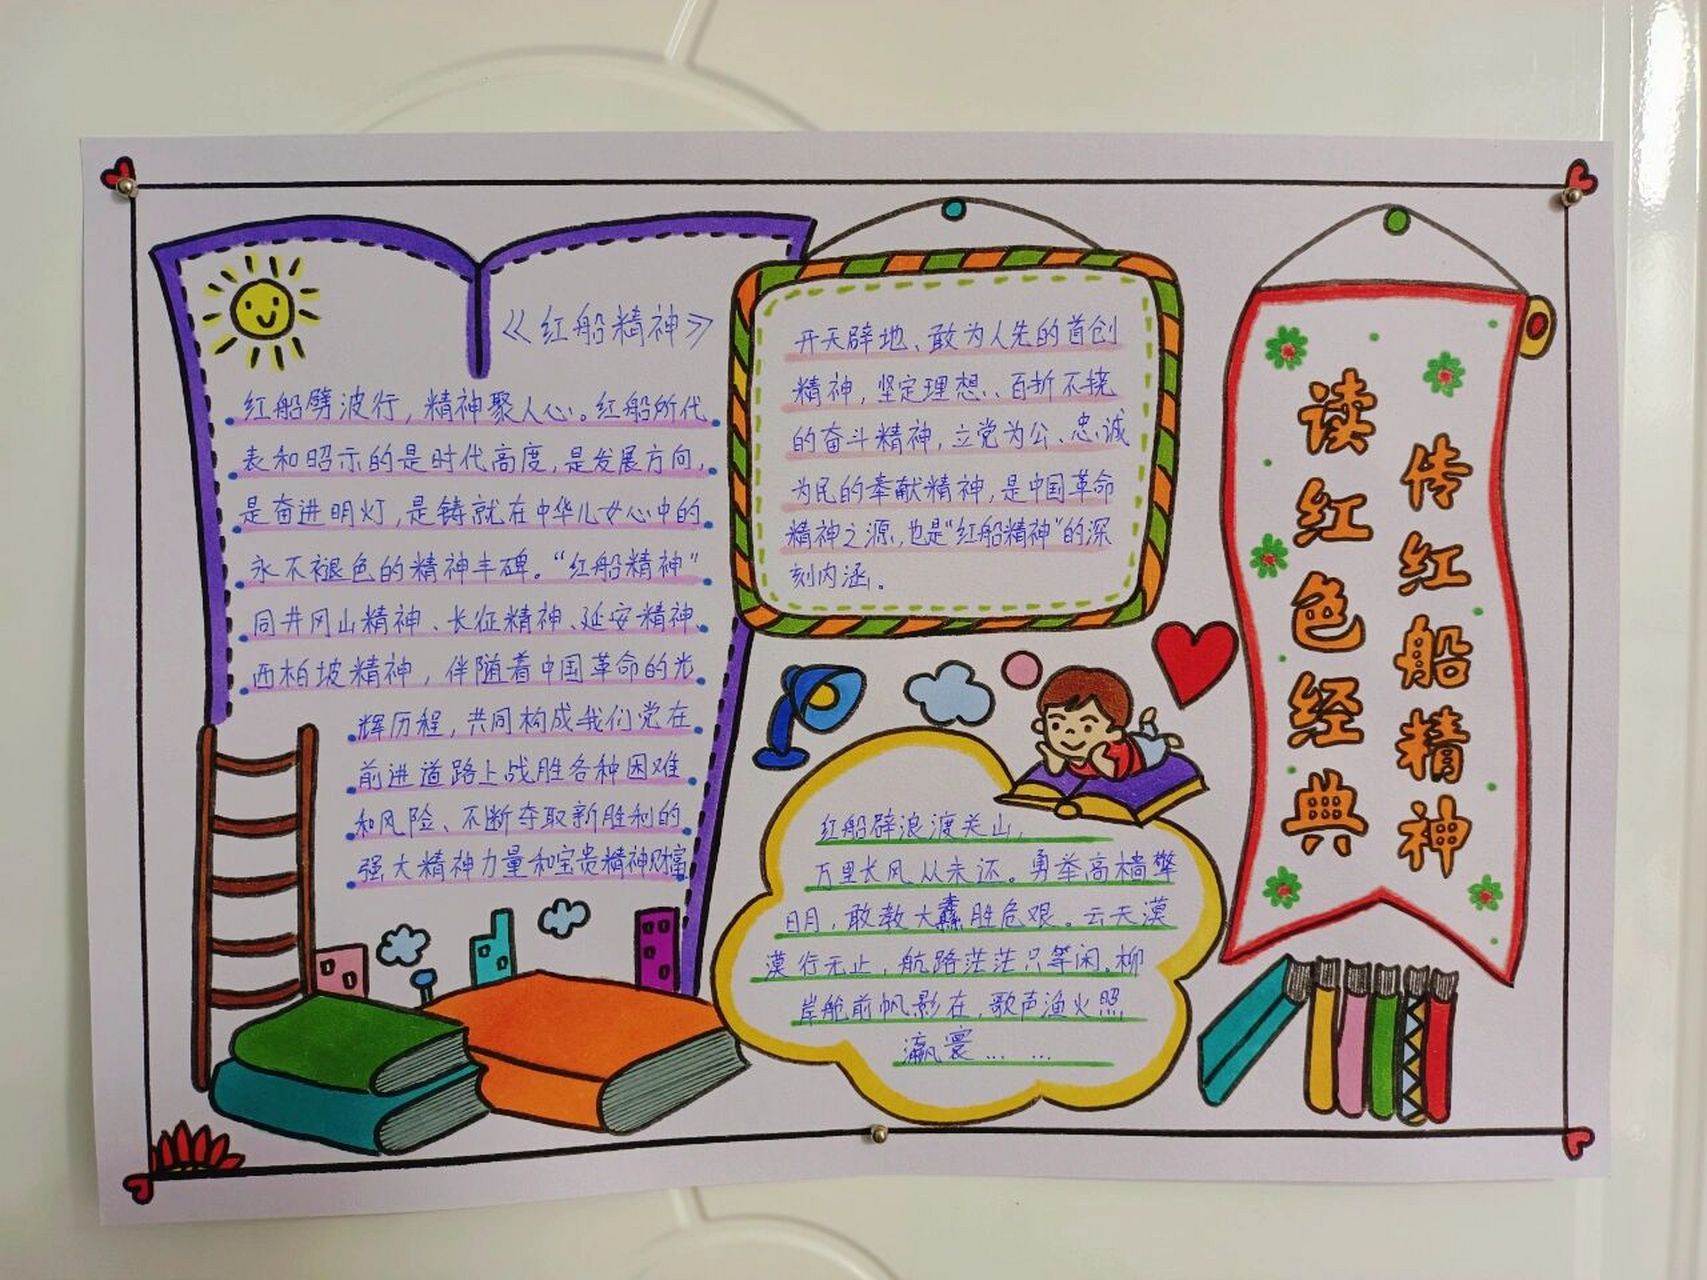 《红船精神》
红船劈波行，精神聚人心。红船所代
表和昭示的是时代高度，是发展方向，
是奋进明灯，是铸就在中华儿女心中的
永不褪色的精神丰碑。“红船精神”
同井冈山精神、长征精神、延安精神、
西柏坡精神，伴随着中国革命的光
辉历程，共同构成我们党在
前进道路上战胜各种困难
和风险、不断夺取新胜利的
强大精神力量和宝贵精神财富
开天辟地、敢为人先的首创
精神，坚定理想、百折不挠
的奋斗精神，立党为公、忠诚
为民的奉献精神，是中国革命
精神之源，也是“红船精神”的深
刻内涵。
红船辟浪渡关山，
万里长风从未还。勇举高樯擎
日月，敢教大纛胜危艰。云天漠
漠行无止，航路茫茫只等闲。柳
岸舵前帆影在，歌声渔火照
瀛寰……
读红色经典
传红船精神